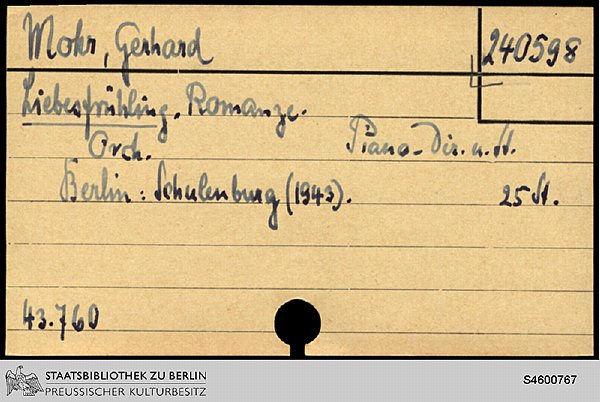 Mohr, Gerhard 240598
Liebesfrühling. Romanze.
Orch. Piano-Dir. u. St.
Berlin: Schulenburg (1943). 25 St.
43.760
STAATSBIBLIOTHEK ZU BERLIN
PREUSSISCHER KULTURBESITZ
S4600767